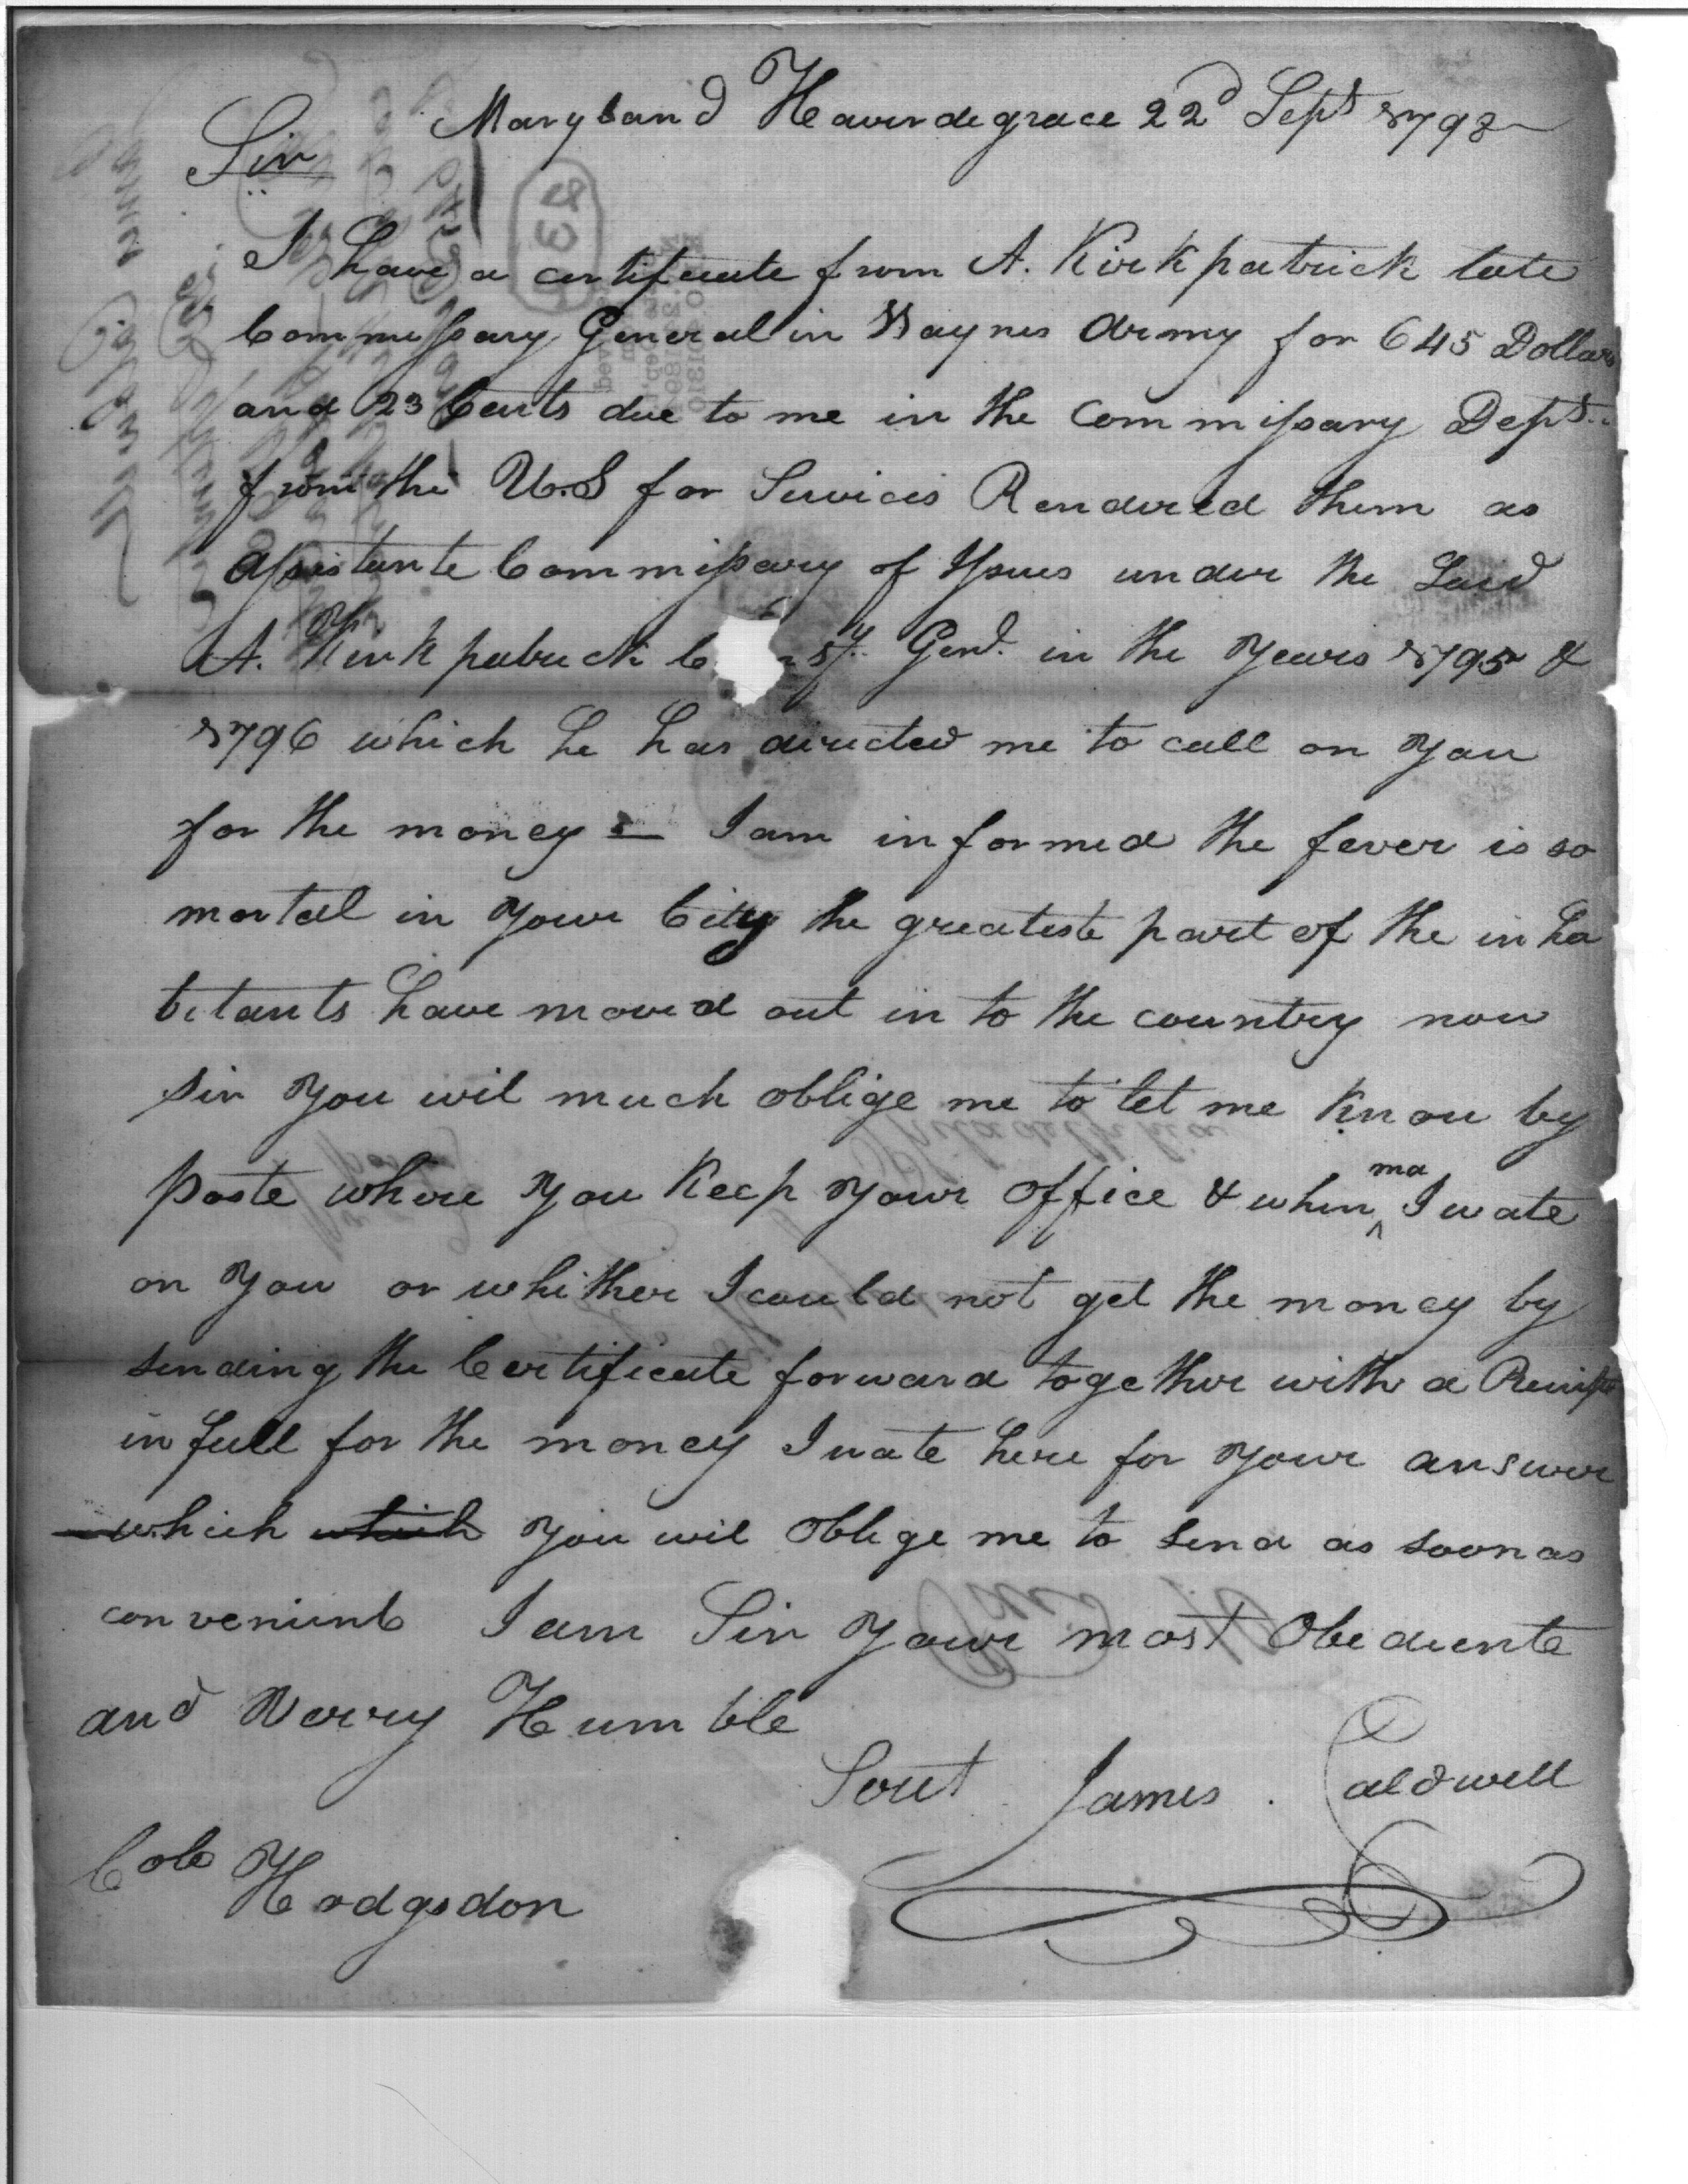 Maryland Haverdegrace 22d Sept 1798
Sir
I have a certificate from A. Kirkpatrick late
Commissary General in Waynes Army for 645 Dollars
and 23 Cents due to me in the Commissary Dept.
from the U.S for Services Rendered them as
assistante Commissary of Issues under the Said
A. Kirkpatrick Genl. in the Years 1795 &
1796 which he has directed me to call on You
for the money — I am informed the fever is so
mortal in Your City the greateste part of the inha
bitants have moved out in to the country now
sir You wil much oblige me to let me Know by
poste where You Keep Your office & when ma I wate
on You or whither I could not get the money by
sending the Certificate forward together with a Receipt
in full for the money I wate here for Your answer
which which You wil oblige me to send as soon as
convenient I am Sir Your most Obediente
and Verry Humble
Sert James Caldwell
Colo Hodgsdon